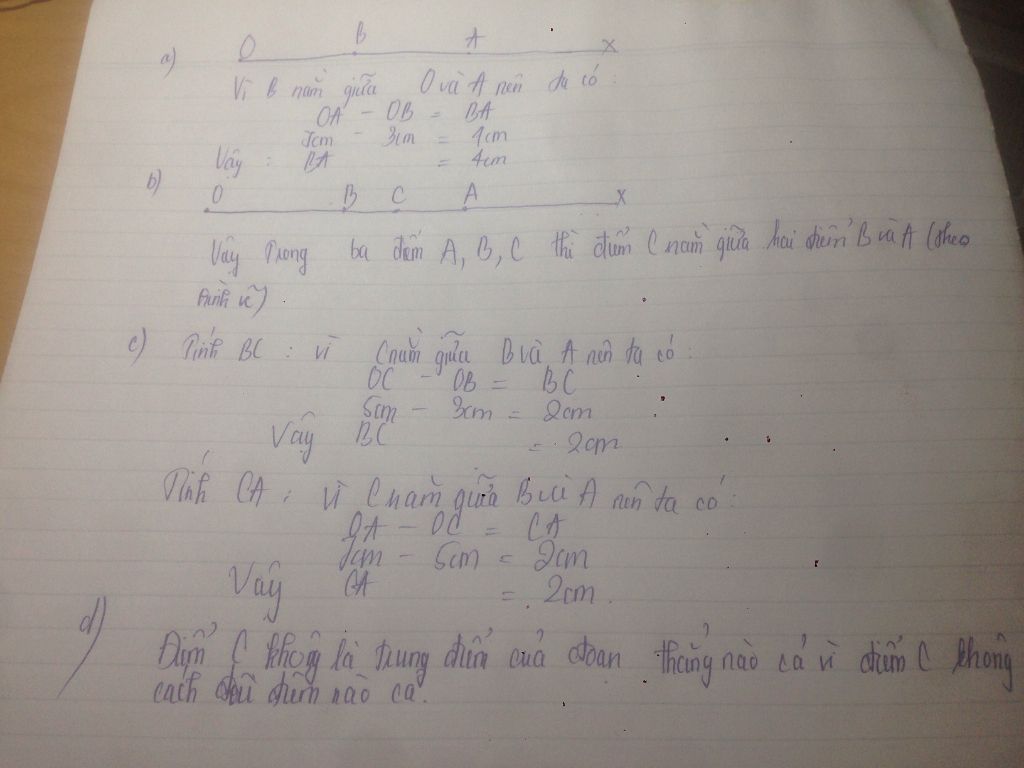 a) O B A x
Vì B nằm giữa O và A nên ta có :
OA - OB = BA
7cm - 3cm = 4cm
Vậy : BA = 4cm
b) O B C A x
Vậy Trong ba điểm A, B, C thì điểm C nằm giữa hai điểm B và A (theo
hình vẽ)
c) Tính BC : vì C nằm giữa B và A nên ta có :
OC - OB = BC
5cm - 3cm = 2cm
Vậy BC = 2cm
Tính CA : vì C nằm giữa B và A nên ta có :
OA - OC = CA
7cm - 5cm = 2cm
Vậy CA = 2cm.
d) Điểm C không là trung điểm của đoan thẳng nào cả vì điểm C không
cách đều điểm nào cả.